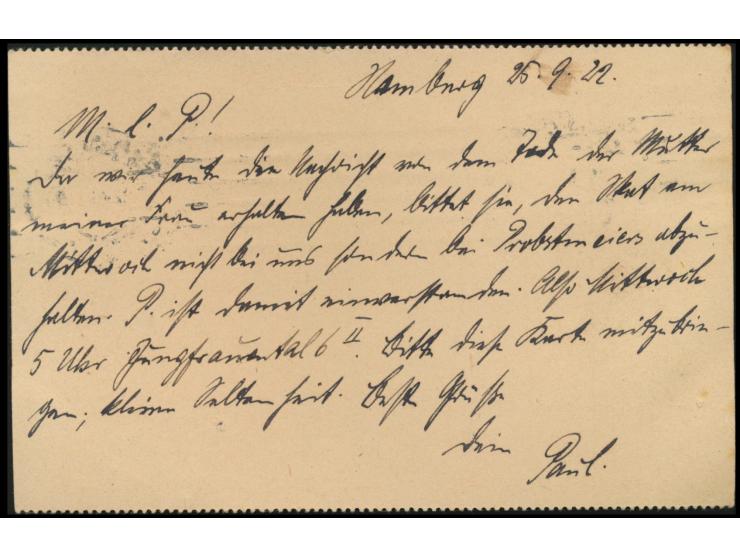 Hamburg 25.9.22.
M. l. P!
Da wir heute die Nachricht von dem Tode der Mutter
meiner Frau erhalten haben, bittet sie, den Skat am
Mittwoch nicht bei uns sondern bei Probstmeiers abzu-
halten. P. ist damit einverstanden. Also Mittwoch
5 Uhr Jungfrauental 6 II. Bitte diese Karte mitzubrin-
gen; kleine Seltenheit. Beste Grüße
Dein
Paul.